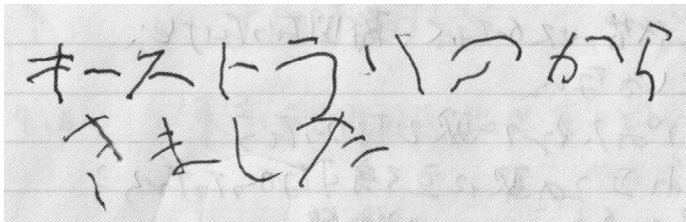 キーストラリアから
きました